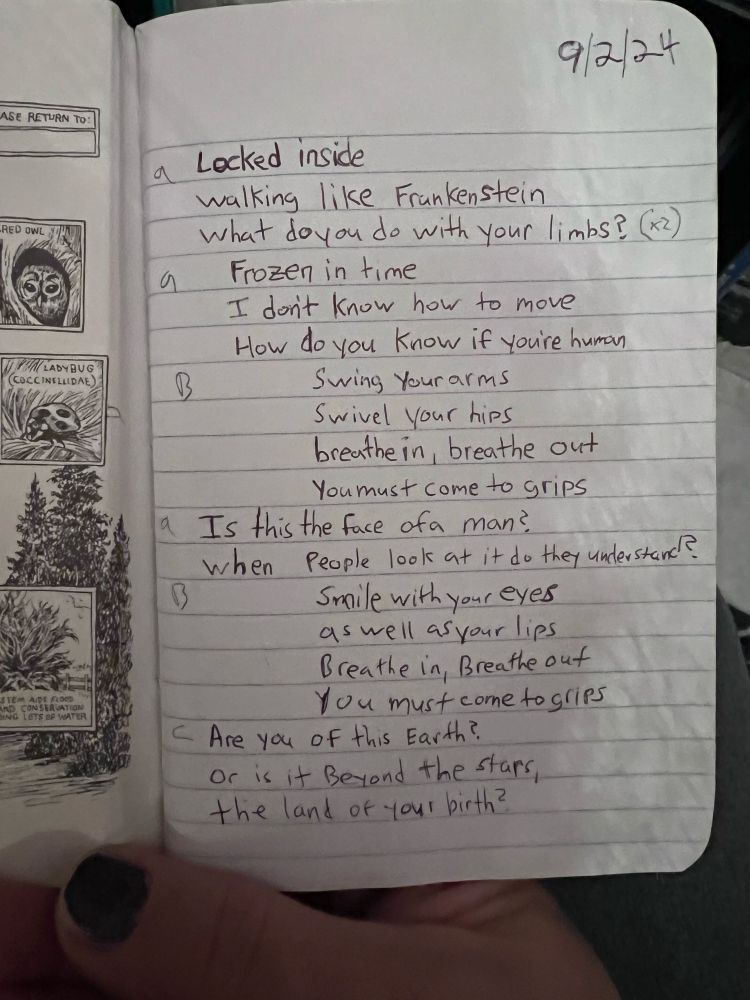 ASE RETURN TO:
RED OWL
LADYBUG
(COCCINELLIDAE)
STEM AIDS FLOOD
AND CONSERVATION
ING LOTS OF WATER
9/2/24
a Locked inside
walking like Frankenstein
What do you do with your limbs? (x2)
a Frozen in time
I don't know how to move
How do you know if you're human
B Swing your arms
Swivel your hips
breathe in, breathe out
You must come to grips
a Is this the face of a man?
When People look at it do they understand?
B Smile with your eyes
as well as your lips
Breathe in, Breathe out
You must come to grips
C Are you of this Earth?
Or is it Beyond the stars,
the land of your birth?